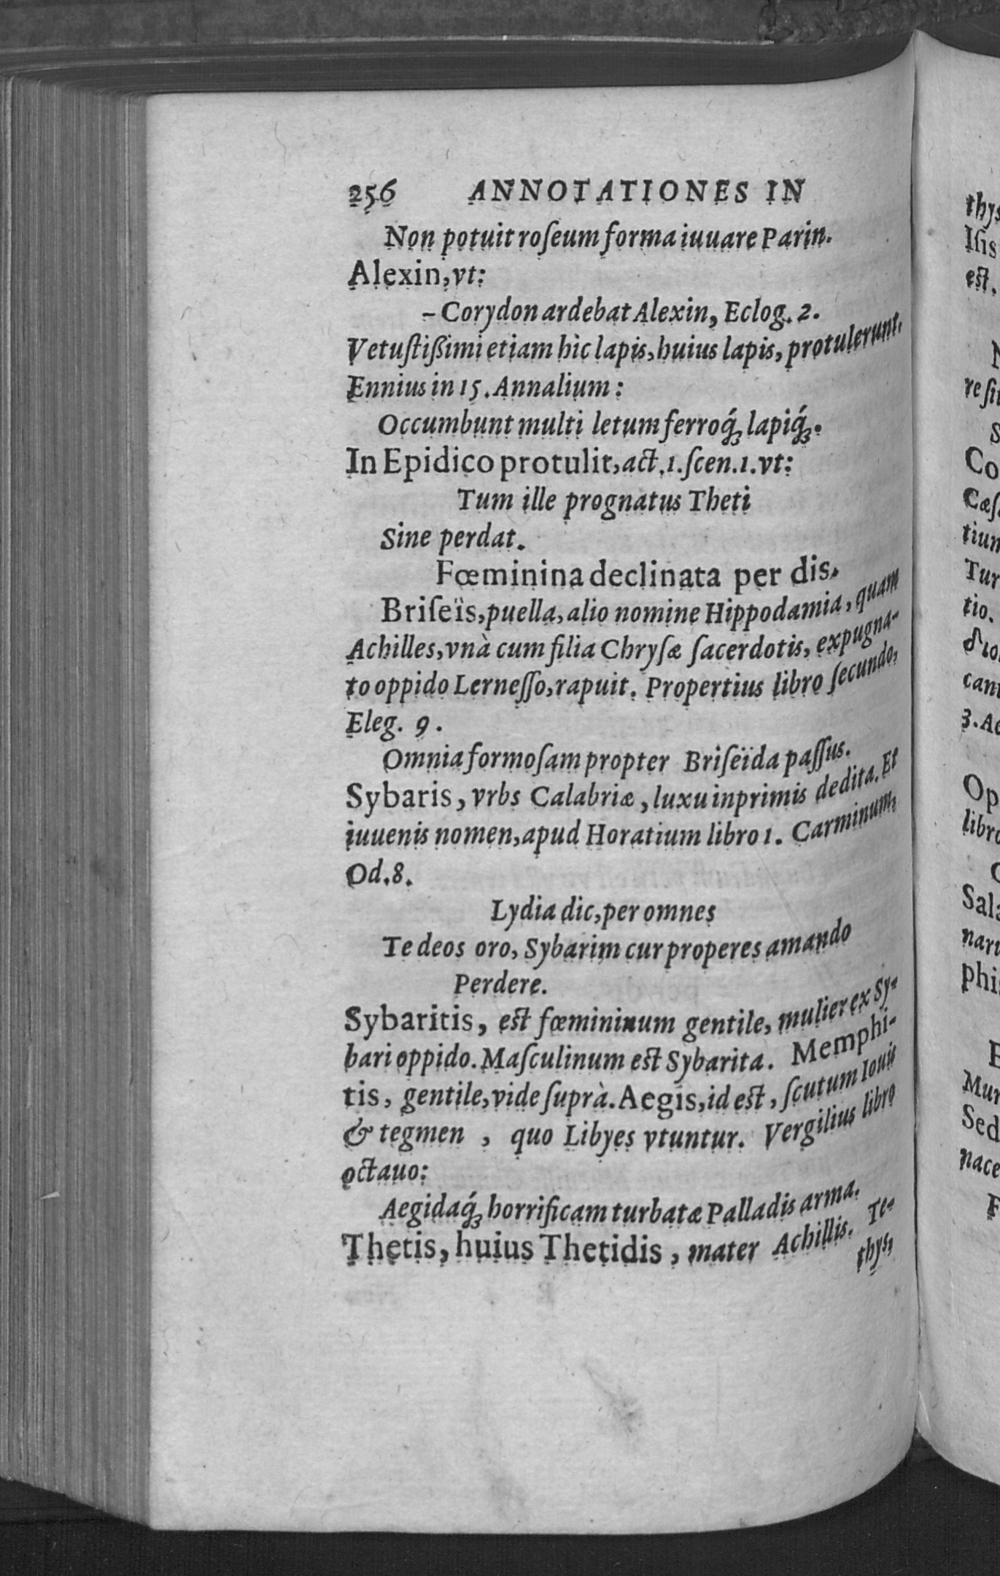 256 ANNOTATIONES IN
Non potuit roſeum forma iuuare Parin.
Alexin, vt:
– Corydon ardebat Alexin, Eclog. 2.
Vetuſtiſsimi etiam hic lapis, huius lapis, protulerunt.
Ennius in 15. Annalium:
Occumbunt multi letum ferroq́ꝫ lapiq́ꝫ.
In Epidico protulit, act. 1. ſcen. 1. vt:
Tum ille prognatus Theti
Sine perdat.
Fœminina declinata per dis.
Briſeïs, puella, alio nomine Hippodamia, quam
Achilles, vnà cum filia Chryſæ ſacerdotis, expugna-
to oppido Lerneſſo, rapuit. Propertius libro ſecundo,
Eleg. 9.
Omnia formoſam propter Briſeïda paſſus.
Sybaris, vrbs Calabriæ, luxu inprimis dedita. Et
iuuenis nomen, apud Horatium libro 1. Carminum,
Od. 8.
Lydia dic, per omnes
Te deos oro, Sybarim cur properes amando
Perdere.
Sybaritis, eſt fœmininum gentile, mulier ex Sy-
bari oppido. Maſculinum eſt Sybarita. Memphi-
tis, gentile, vide ſuprà. Aegis, id eſt, ſcutum Iouis
& tegmen, quo Libyes vtuntur. Vergilius libro
octauo:
Aegidaq́ꝫ horrificam turbatæ Palladis arma.
Thetis, huius Thetidis, mater Achillis. Te-
thys,
thys
Iſis
eſt.
re ſi
S
Co
Cæſ
tiun
Tur
tio.
can
3. Ac
Op
libro
Sala
nar
phi
Mur
Sed
nace